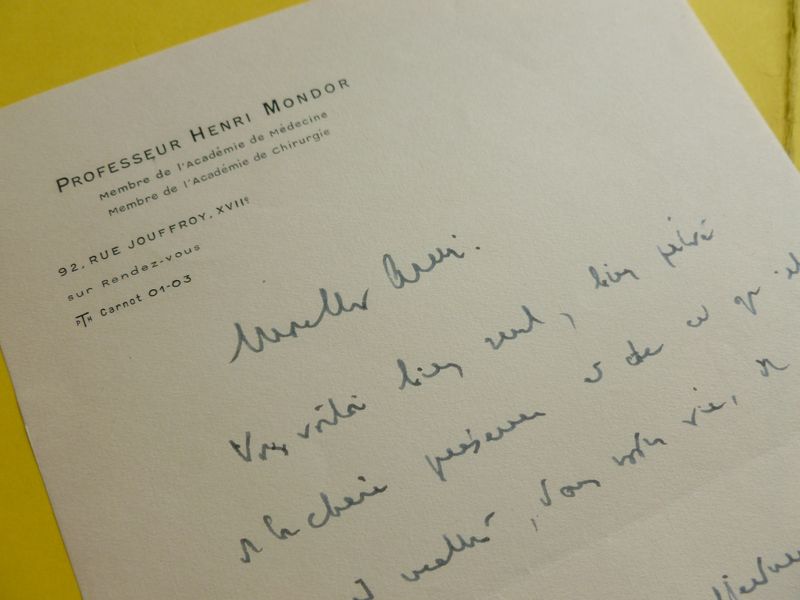 PROFESSEUR HENRI MONDOR
Membre de l'Académie de Médecine
Membre de l'Académie de Chirurgie
92, RUE JOUFFROY, XVIIe
sur Rendez-vous
PTH Carnot 01-03
Vous voilà bien seul, bien privé
de la chère présence et de ce qu'
dans votre vie,